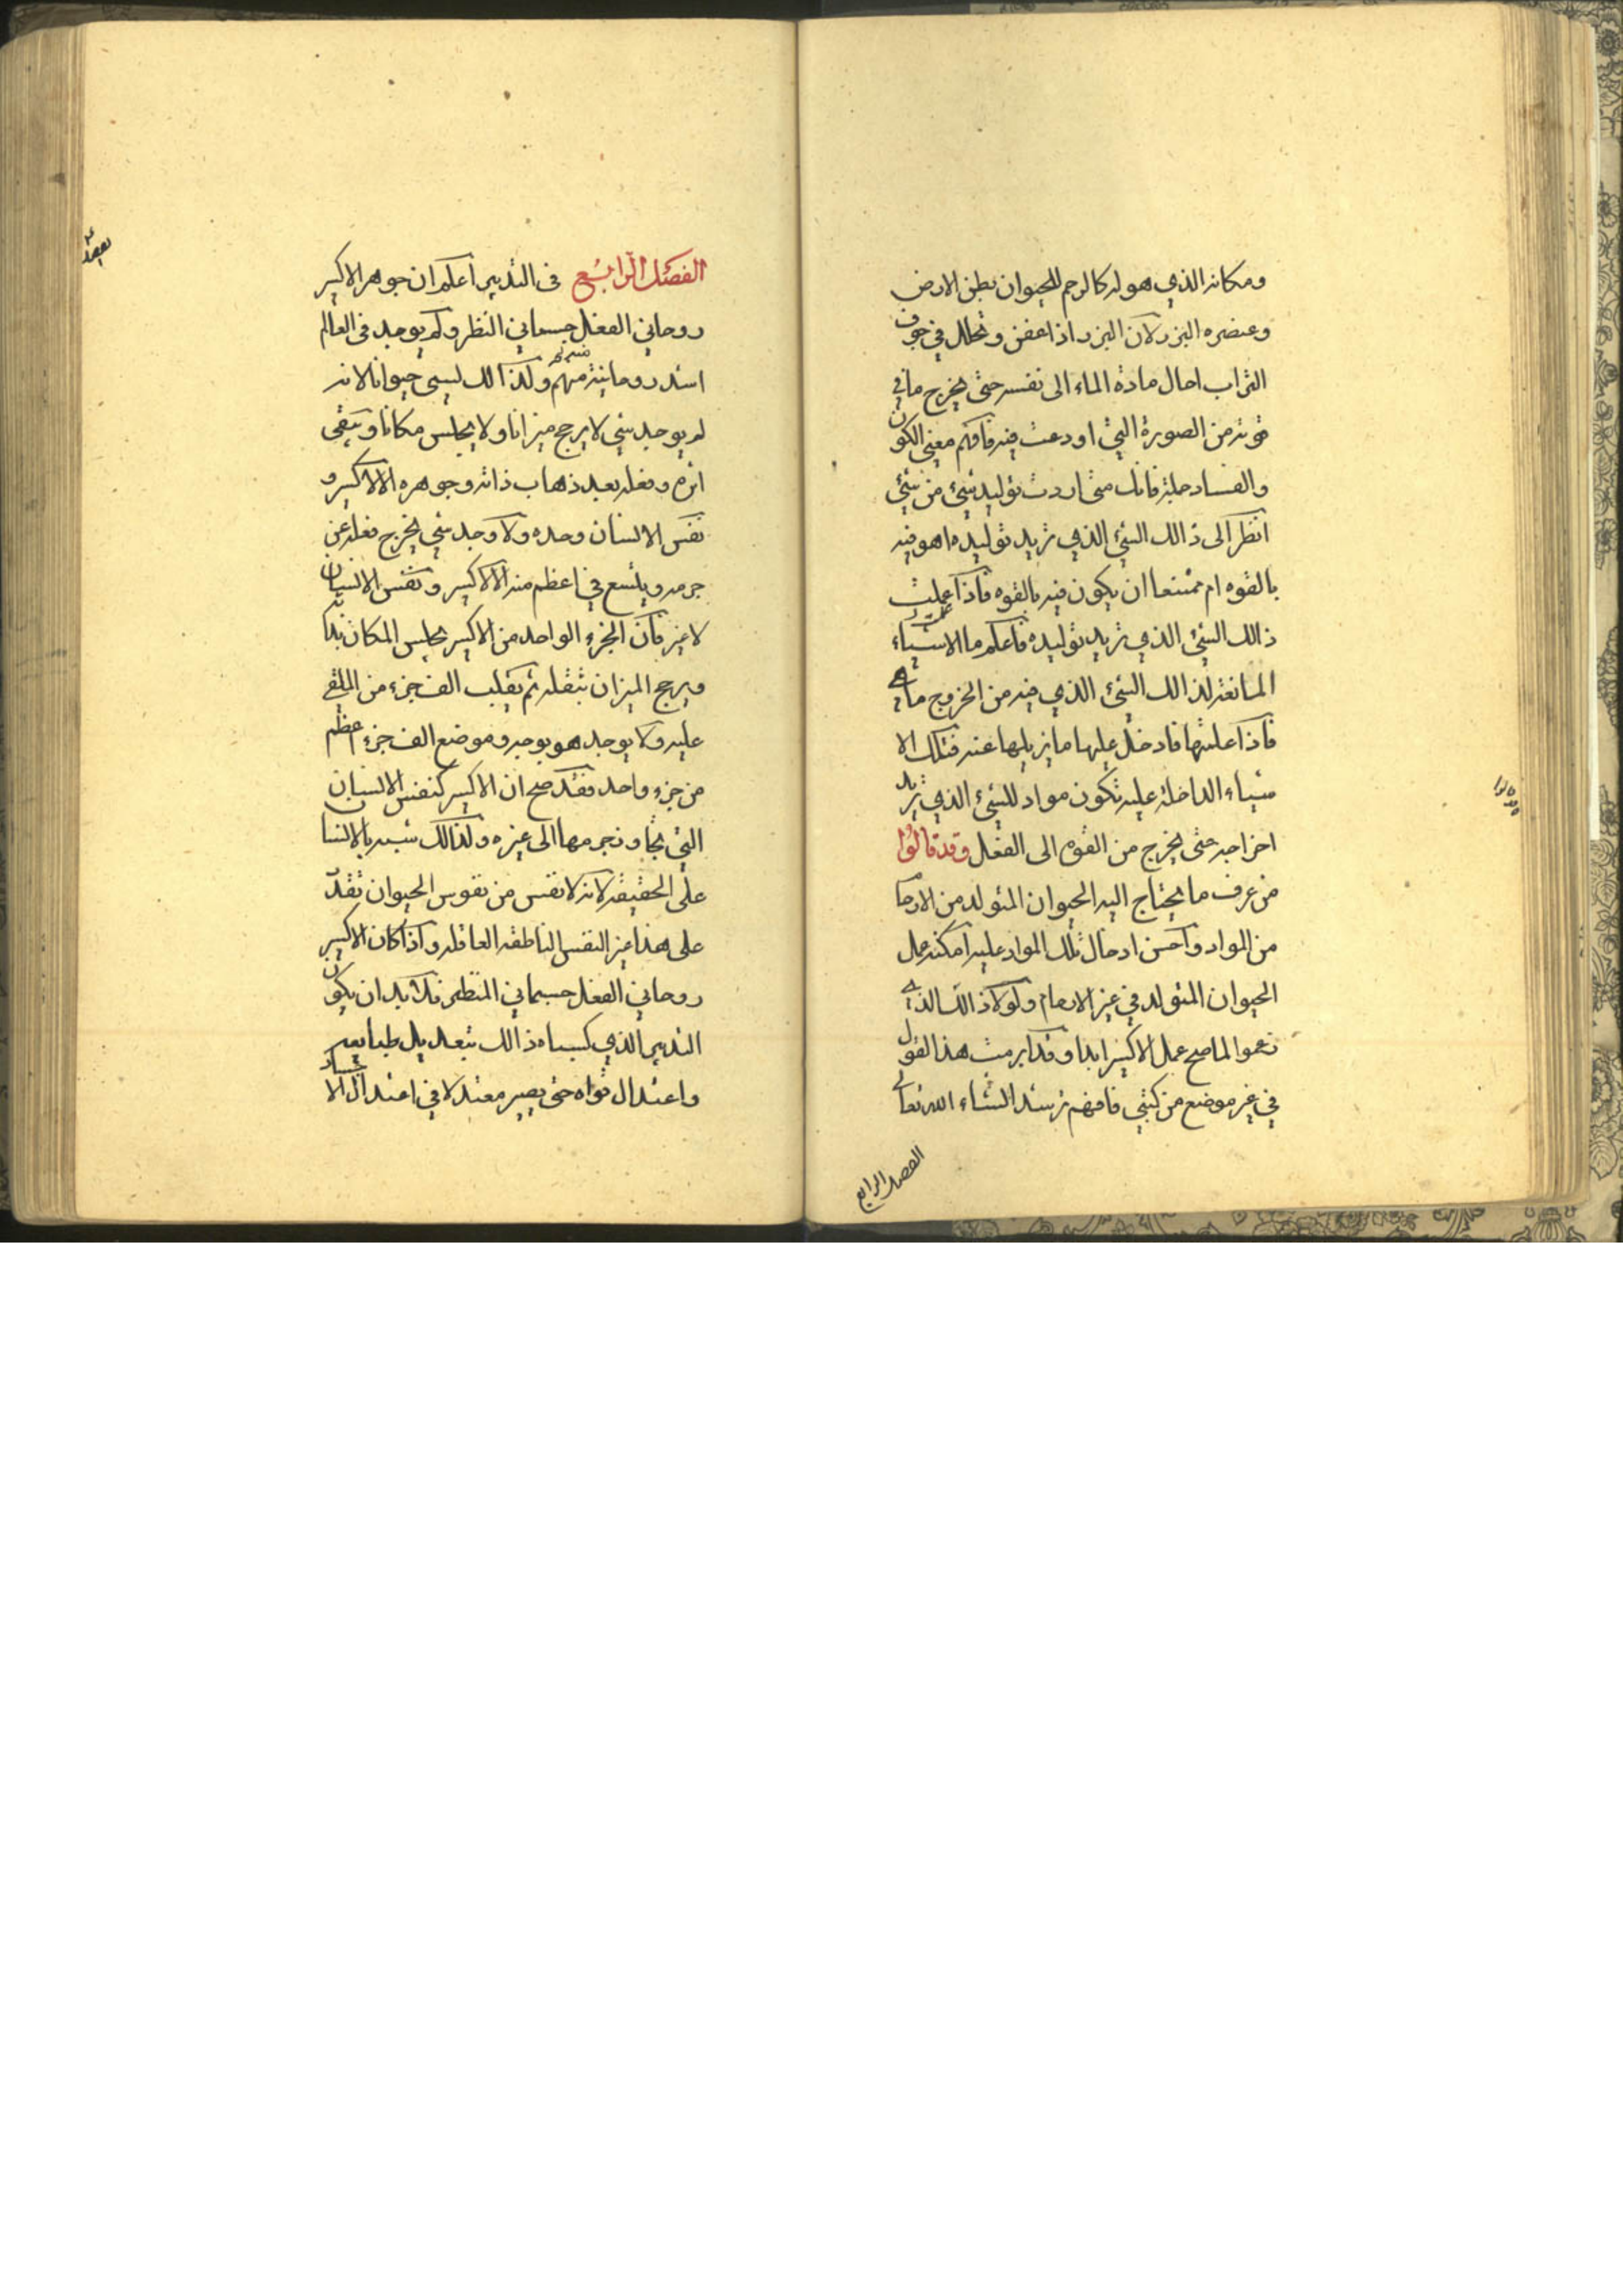 ومكانه الذي هو له كالرحم للحيوان بطن الارض
وعنصره البزر لان البزر اذا عفن وتحلل في جوف
التراب احال مادة الماء الى نفسه حتى يخرج ما في
قوته من الصورة التي اودعت فيه فافهم معنى الكون
والفساد جملة فانك متى اردت توليد شيء من شيء
انظر الى ذالك الشيء الذي تريد توليده اهو فيه
بالقوه ام ممتنعا ان يكون فيه بالقوه فاذا علمت
ذالك الشيء الذي تريد توليده فاعلم ما الاشياء
المانعة لذالك الشيء الذي فيه من الخروج ماهي
فاذا علمتها فادخل عليها ما يزيلها عنه فتلك الا
شياء الداخلة عليه تكون مواد للشيء الذي تريد
اخراجه حتى يخرج من القوه الى الفعل وقد قالوا
من عرف ما يحتاج اليه الحيوان المتولد من الارحا
من المواد واحسن ادخال تلك المواد عليه امكنه عمل
الحيوان المتولد في غير الارحام ولولا ذالك الذي
زعموا لما صح عمل الاكسير ابدا وقد ابرمت هذا القول
في غير موضع من كتبي فافهم ترشد انشاء الله تعالى
الفصل الرابع
الفصل الرابع في التدبير اعلم ان جوهر الاكسير
روحاني الفعل جسماني النظر ولم يوجد في العالم
اشد روحانية منهم ولذالك ليسى حيوانا لانه
لم يوجد شي لا يرجح ميزانا ولا يجلس مكانا وتبقى
اثره وفعله بعد ذهاب ذاته وجوهره الا الاكسير و
نفس الانسان وحده ولا وجد شي يخرج فعله عن
جرمه ويتسع في اعظم منه الا الاكسير ونفس الانسان
لاغير فان الجزء الواحد من الاكسير يجلس المكان بذاته
ويرجح الميزان بثقله ثم يقلب الف جزء من الملقى
عليه ولا يوجد هو بوجه وموضع الف جزء اعظم
من جزء واحد فقد صح ان الاكسير كنفس الانسان
التي تجاوز جرمها الى غيره ولذالك شبه بالانسا
على الحقيقة لانه لا نفس من نفوس الحيوان تقد
على هذا غير النفس الناطقه العاقله واذا كان الاكسير
روحاني الفعل جسماني المنظر فلا بد ان يكون
التدبير الذي كسبه ذالك بتعديل طبايعه
واعتدال قواه حتى يصير معتدلا في اعتدال الاجساد